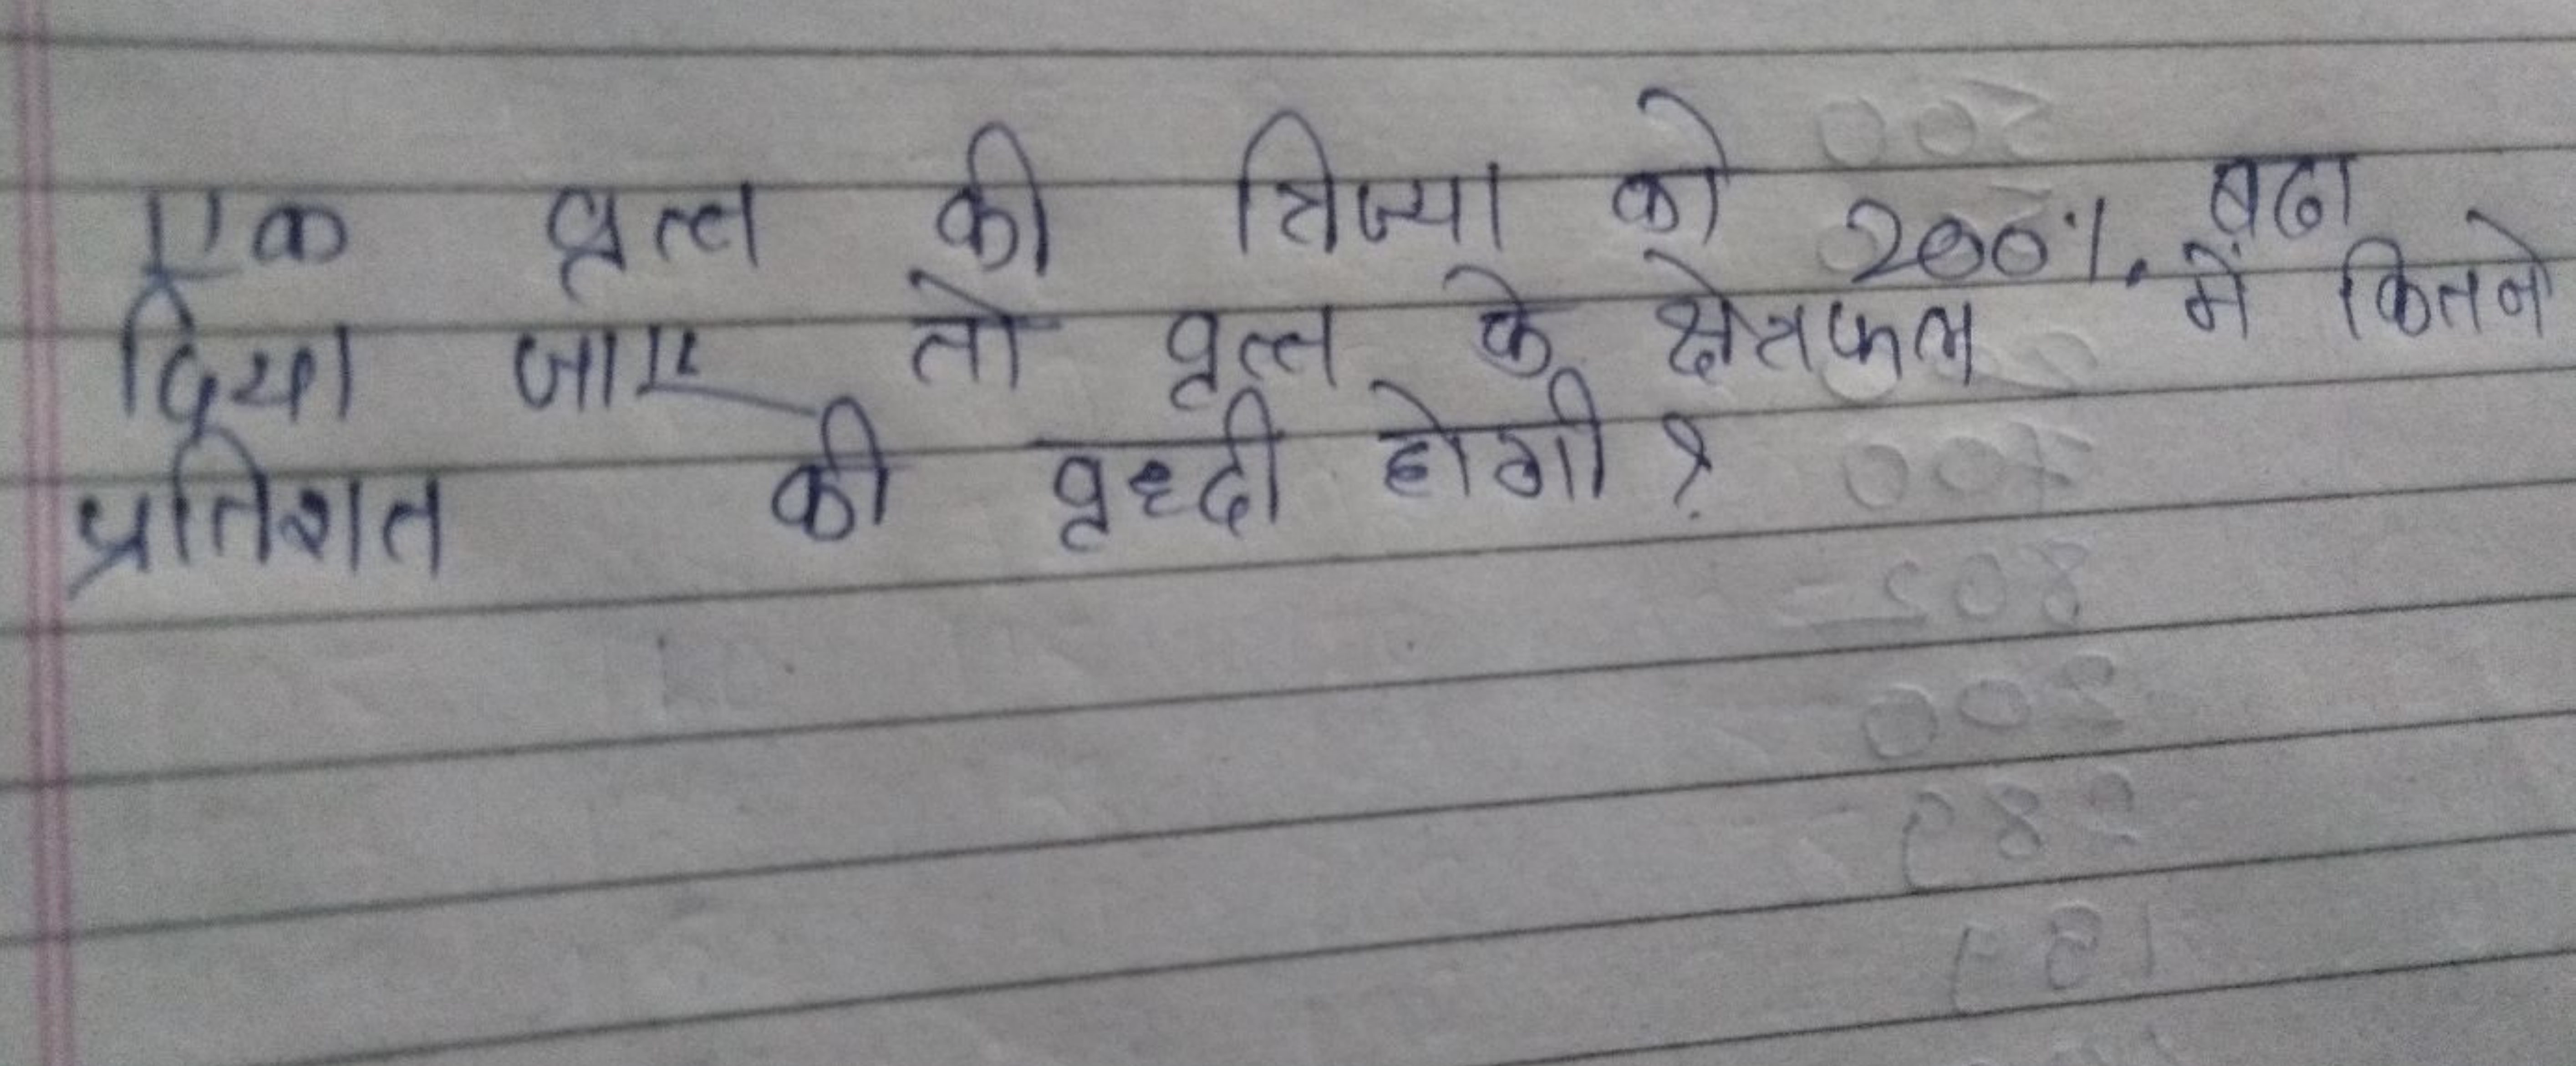 एक वृत्त की त्रिज्या को 200%. बढा
दिया जाए तो वृत्त के क्षेत्रफल में कितने
प्रतिशत की वृध्दी होगी ?